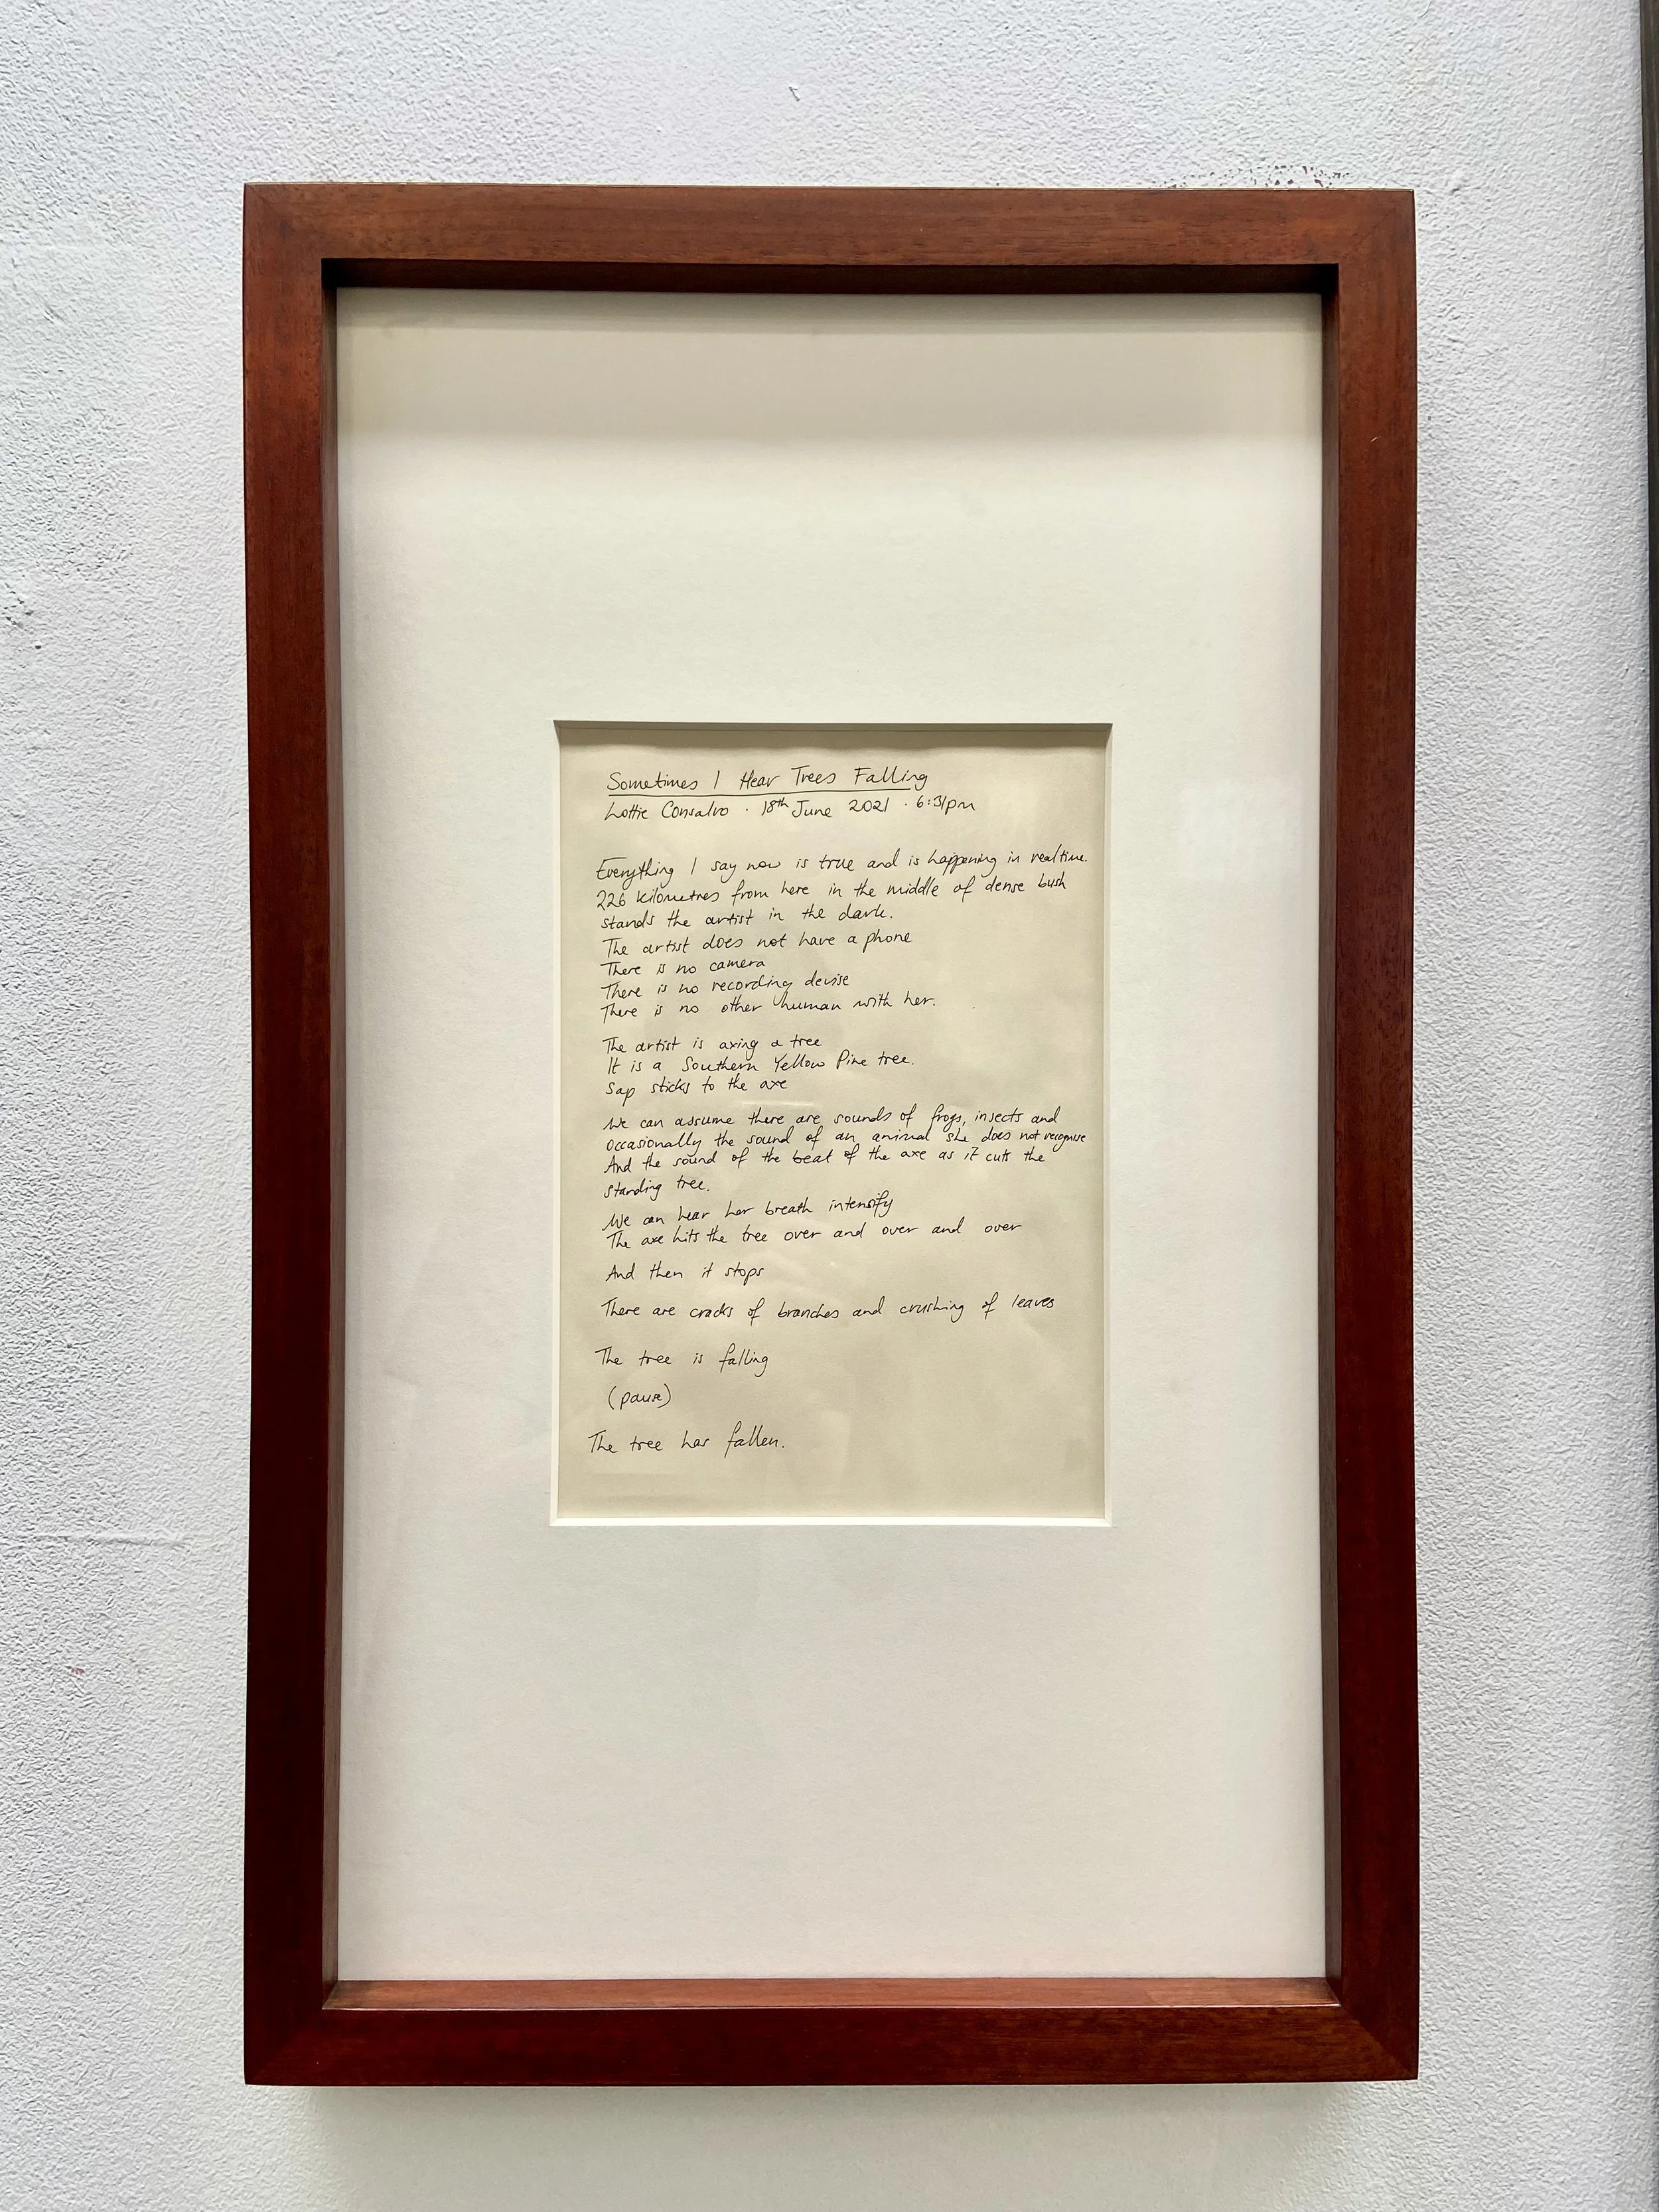 Sometimes I Hear Trees Falling
Lottie Consalvo · 18th June 2021 · 6:31pm
Everything I say now is true and is happening in realtime.
226 kilometres from here in the middle of dense bush
stands the artist in the dark.
The artist does not have a phone
There is no camera
There is no recording devise
There is no other human with her.
The artist is axing a tree
It is a Southern Yellow Pine tree.
Sap sticks to the axe
We can assume there are sounds of frogs, insects and
occasionally the sound of an animal she does not recognise
And the sound of the beat of the axe as it cuts the
standing tree.
We can hear her breath intensify
The axe hits the tree over and over and over
And then it stops
There are cracks of branches and crushing of leaves
The tree is falling
(pause)
The tree has fallen.